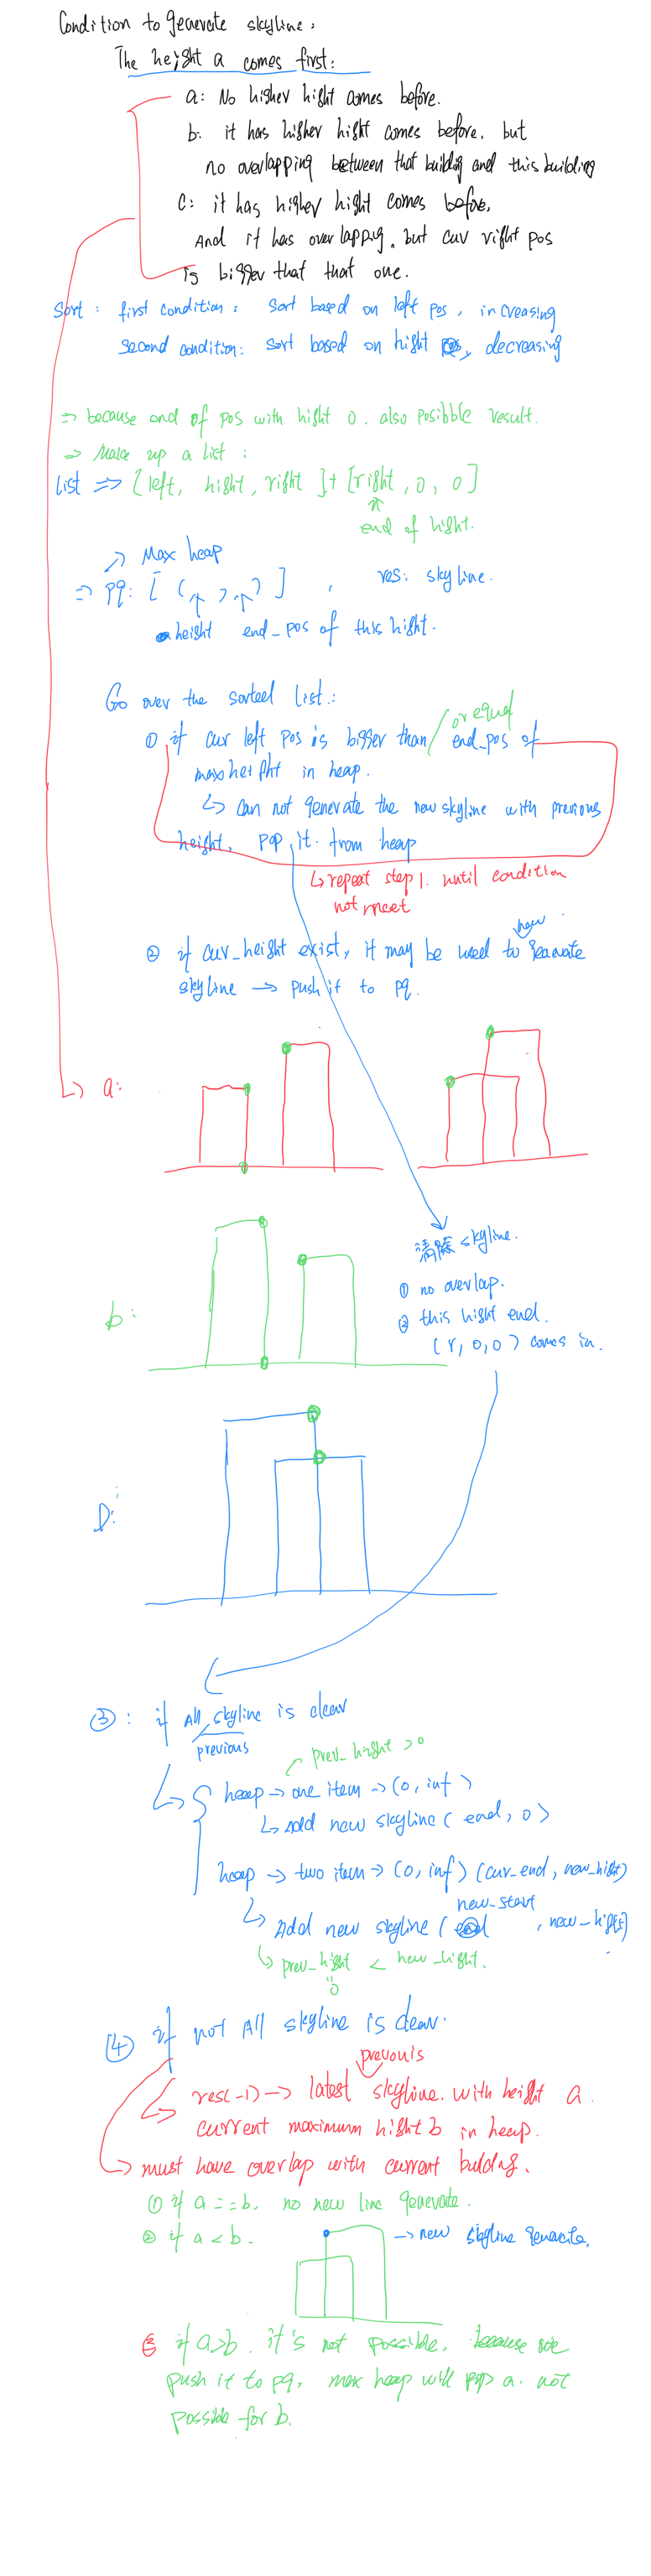 Condition to generate skyline:
The height a comes first:
a: No higher hight comes before.
b: it has higher hight comes before. but
no overlapping between that building and this building
C: it has higher hight comes before.
And it has overlapping. but cur right pos
is bigger that that one.
Sort: first condition: sort based on left pos, increasing
second condition: sort based on hight, decreasing
=> because end of pos with hight 0. also posibble result.
=> Make up a list:
List => [left, hight, right] + [right, 0, 0]
end of hight.
Max heap
=> pq: [ ( , ) ] , res: skyline.
height end_pos of this hight.
Go over the sorted list:
or equal
① if cur left pos is bigger than end_pos of
max height in heap.
↳ can not generate the new skyline with previous
height, pop it from heap
↳ repeat step 1. until condition
not meet
new
② if cur_height exist, it may be used to generate
skyline → push it to pq.
a:
清除 skyline.
① no overlap.
b:
② this hight end.
(r, 0, 0) comes in.
D:
③: if All skyline is clear
previous
prev_hight > 0
heap → one item → (0, inf)
↳ Add new skyline (end, 0)
heap → two item → (0, inf) (cur_end, new_hight)
new_start
↳ Add new skyline ( , new_hight)
↳ prev_hight < new_hight.
0
④ if not All skyline is clear.
prevouis
res(-1) → latest skyline. with height a.
current maximum hight b in heap.
↳ must have overlap with current buldng.
① if a == b. no new line generate.
② if a < b. → new skyline generate.
③ if a > b. it's not possible. because we
push it to pq. max heap will pop a. not
possible for b.